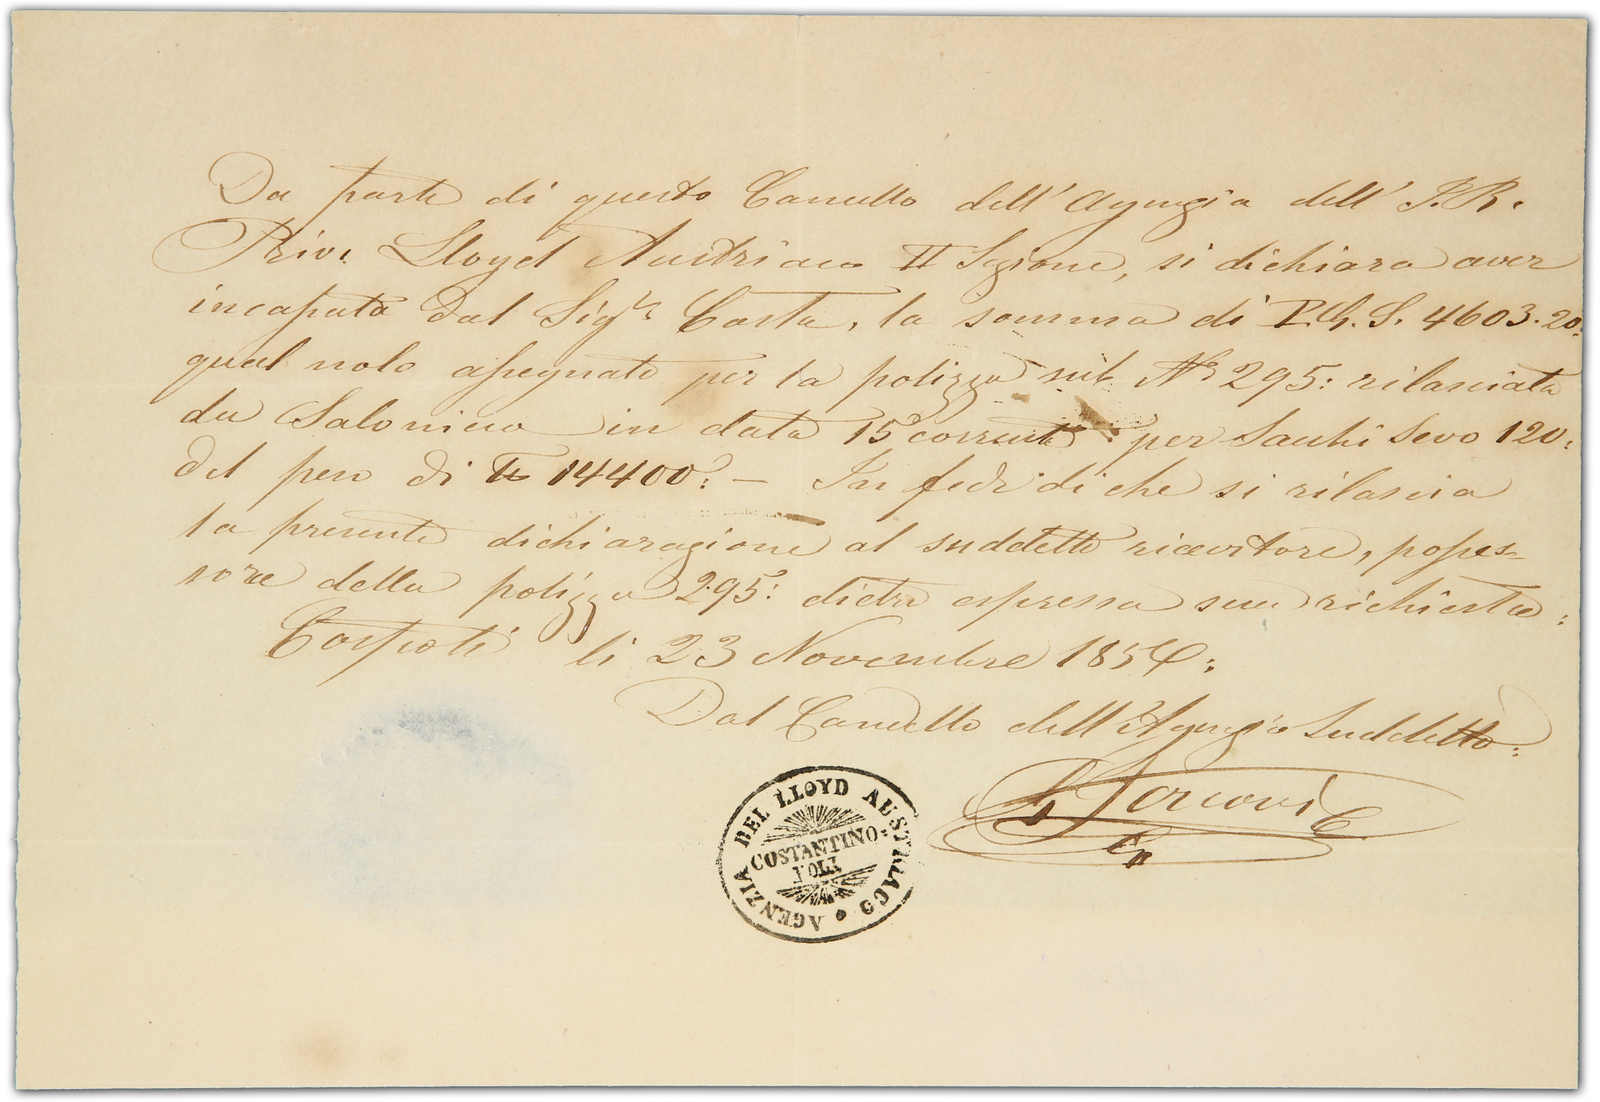 Da parte di questo Cancello dell'Agenzia dell' I. R.
Priv. Lloyd Austriaco II Sezione, si dichiara aver
incassato dal Sigr. Costa, la somma di P.G.S. 4603.20
qual nolo assegnato per la polizza sub No 295: rilasciata
da Salonicco in data 15 corrente per Sacchi Sevo 120:
del peso di ℔ 14400: — In fede di che si rilascia
la presente dichiarazione al suddetto ricevitore, posses-
sore della polizza 295: dietro espressa sua richiesta:
Costpoli li 23 Novembre 1854:
Dal Cancello dell'Agenzia Suddetta:
AGENZIA DEL LLOYD AUSTRIACO
COSTANTINO-
POLI